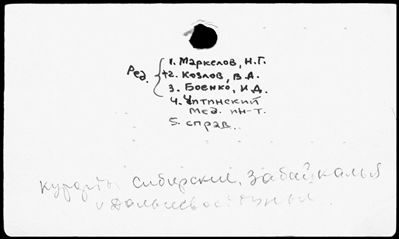 Ред.
1. Маркелов, Н.Г.
+2. Козлов, В.А.
3. Боенко, И.Д.
4.
мед. ин-т.
5. справ.
курорты Сибирские, Забайкалья
и Дальневосточные.